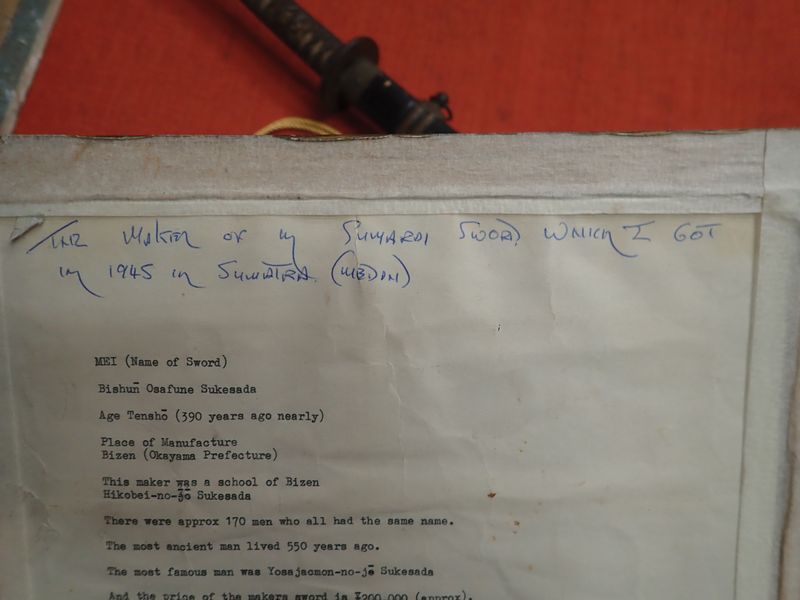 THE MAKER OF MY SUMARAI SWORD WHICH I GOT
IN 1945 IN SUMATRA (MEDAN)
MEI (Name of Sword)
Bishun̄ Osafune Sukesada
Age Tenshō (390 years ago nearly)
Place of Manufacture
Bizen (Okayama Prefecture)
This maker was a school of Bizen
Hikobei-no-jō Sukesada
There were approx 170 men who all had the same name.
The most ancient man lived 550 years ago.
The most famous man was Yosajacmon-no-jō Sukesada
And the price of the makers sword is ¥200,000 (approx).